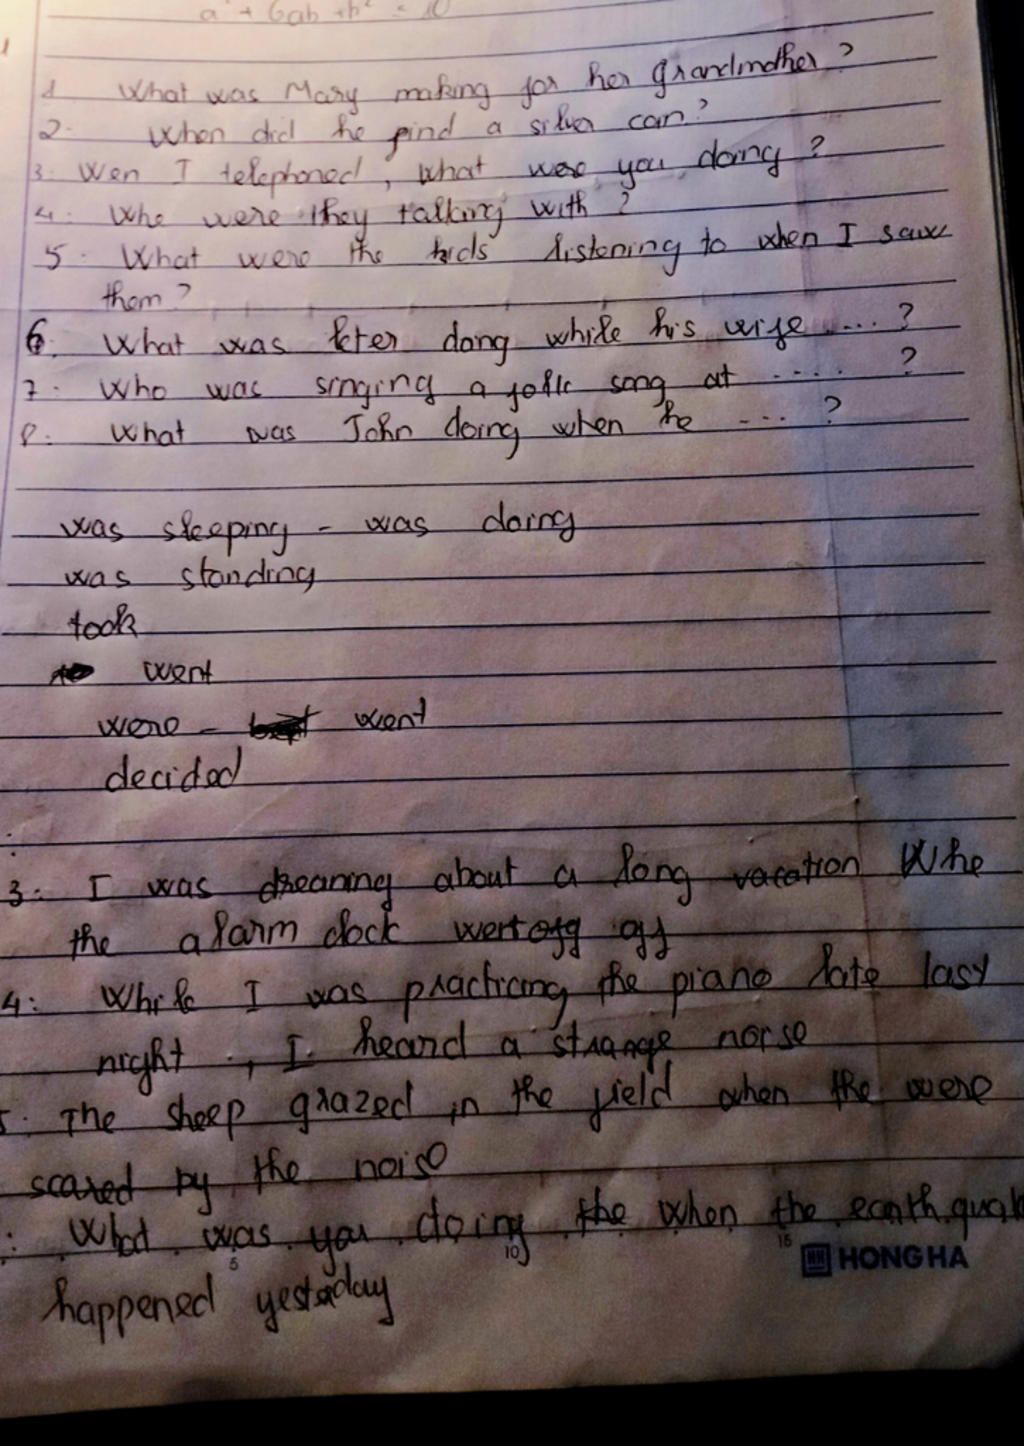 1. What was Mary making for her grandmother?
2. When did he find a silver coin?
3. Wen I telephoned, what were you doing?
4. Who were they talking with?
5. What were the kids listening to when I saw
them?
6. What was Peter doing while his wife ....?
7. Who was singing a folk song at .....?
8. What was John doing when he ...?
was sleeping - was doing
was standing
took
went
were - went
decided
3: I was dreaming about a long vacation Whe
the alarm clock off
4: While I was practicing the piano late lasy
night, I heard a strange noise
5. The sheep grazed in the field when the were
scared by the noise
: What was you doing the when the earth quak
5 10 15
HH HONG HA
happened yesterday